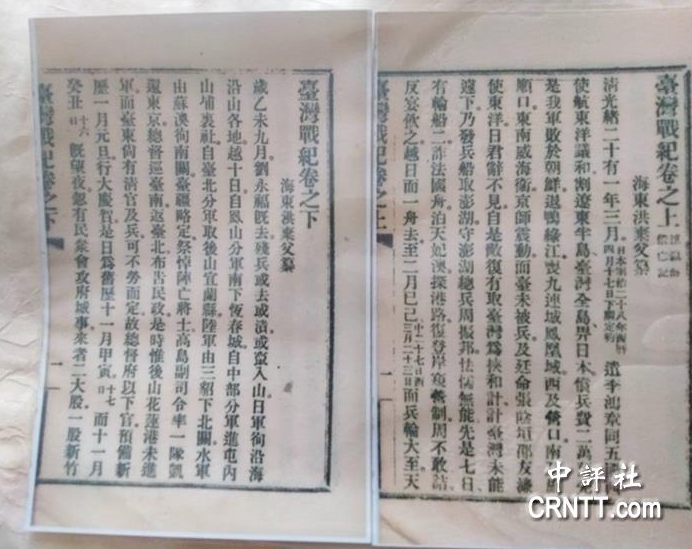 臺灣戰紀卷之上
海東洪棄父纂
清光緒二十有一年三月。日本明治二十八年西曆四月十七日下關定約遣李鴻章
使航東洋議和割遼東半島臺灣全島畀日本償兵費二萬
是我軍敗於朝鮮退鴨綠江喪九連城鳳凰城西及營口南
順口東南威海衛京師震動而臺未被兵及廷命張蔭垣邵友濂
使東洋日君辭不見自是敵復有取臺灣為挾和計臺灣未能
遽下乃發兵船取澎湖守澎湖總兵周振邦怯懦無能先是七日
有輪船二詐法國舟泊天妃澳探港路復登岸窺營制周不敢詰
反宴飲之越日而一舟去至二月己巳二十七日西三月二十三日西兵輪大至天
臺灣戰紀卷之上
一
臺灣戰紀卷之下
海東洪棄父纂
歲乙未九月劉永福既去殘兵或去或潰或竄入山日軍徇沿海
沿山各地越十日自鳳山分軍南下恆春城自中部分軍進屯內
山埔裏社自臺北分軍取後山宜蘭縣陸軍由三貂下北關水軍
由蘇澳徇南關臺疆略定祭悼陣亡將士高島副司令率一隊凱
還東京總督巡臺南返臺北布告民政是時惟後山花蓮港未進
軍而臺東尚有清官及兵可不勞而定故總督府以下官預備新
曆一月元旦行大慶賀是日為舊曆十一月甲寅十七日而十一月
癸丑十六日既望夜忽有民眾會攻府城事來者二大股一股新竹
臺灣戰紀卷之下
一
中評社
CRNTT.com